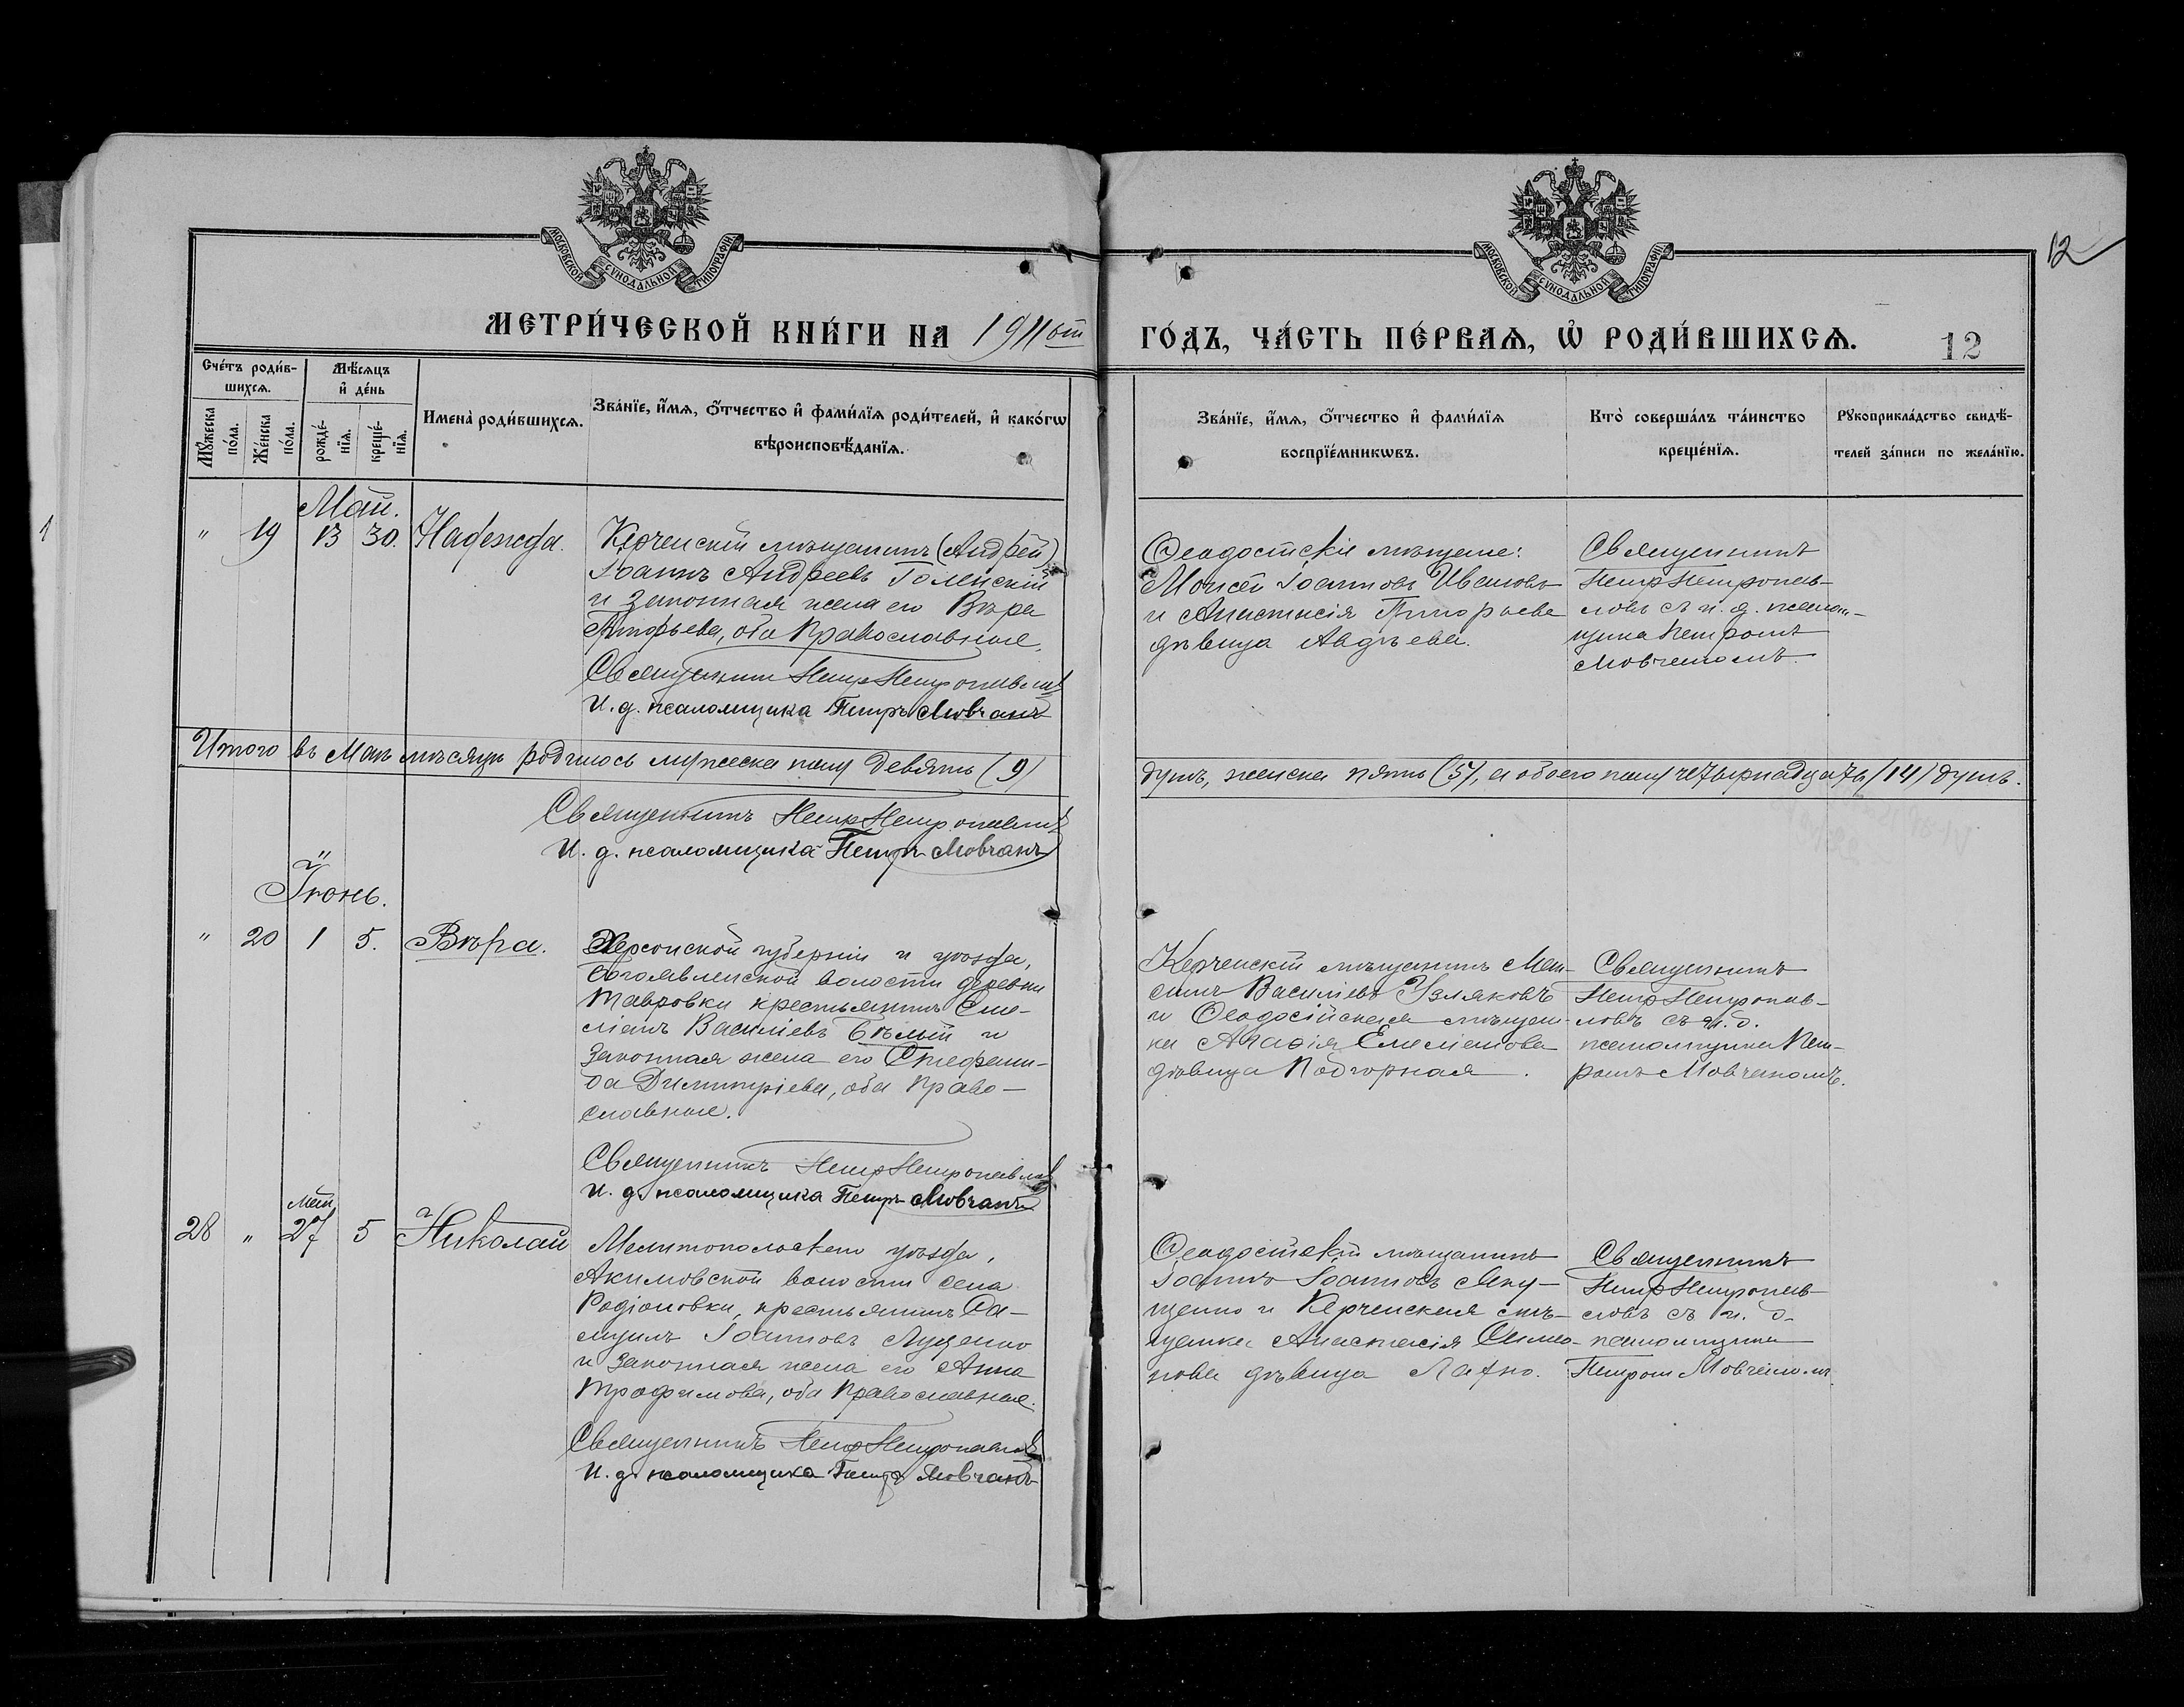 МОСКОВСКОЙ СУНОДАЛЬНОЙ ТИПОГРАФІИ
МОСКОВСКОЙ СУНОДАЛЬНОЙ ТИПОГРАФІИ
12
МЕТРИ́ЧЕСКОЙ КНИ́ГИ НА 1911 ый
ГО́ДЪ, ЧА́СТЬ ПЕ́РВАѦ, Ѽ РОДИ́ВШИХСѦ.
12
Сче́тъ роди́в-
шихсѧ.
Мꙋ́жеска
по́ла.
Же́нска
по́ла.
Мѣ́сѧцъ
и҆ де́нь
рожде́-
нїѧ.
креще́-
нїѧ.
Имена̀ роди́вшихсѧ.
Зва́нїе, и҆́мѧ, ѻ҆́тчество и҆ фами́лїѧ роди́телей, и҆ како́гѡ
вѣроисповѣ́данїѧ.
Зва́нїе, и҆́мѧ, ѻ҆́тчество и҆ фами́лїѧ
воспрїе́мникѡвъ.
Кто̀ соверша́лъ та́инство
креще́нїѧ.
Рꙋкоприкла́дство свидѣ́-
телей за́писи по жела́нїю.
1
Май.
" 19 13 30. Надежда.
Керченскій мѣщанинъ (Андрей)
Іоаннъ Андреевъ Голенскій
и законная жена его Вѣра
Григорьева, оба Православные.
Священникъ Петръ Петропавловъ
И. д. псаломщика Петръ Мовчанъ
Ѳеодосійскіе мѣщане:
Моисей Іоанновъ Ивановъ
и Анастасія Григорьева
дѣвица Авдѣева.
Священникъ
Петръ Петропав-
ловъ съ и. д. псалом-
щика Петромъ
Мовчаномъ.
Итого въ Маѣ мѣсяцѣ родилось мужеска полу девять (9)
душъ, женска пять (5), а обоего полу четырнадцать (14) душъ.
Священникъ Петръ Петропавловъ
И. д. псаломщика Петръ Мовчанъ
Іюнь.
" 20 1 5. Вѣра.
Херсонской губерніи и уѣзда,
Богоявленской волости деревни
Тавровки крестьянинъ Еме-
ліанъ Василіевъ Бѣлый и
законная жена его Стефани-
да Димитріева, оба Право-
славные.
Священникъ Петръ Петропавловъ
И. д. псаломщика Петръ Мовчанъ
Керченскій мѣщанинъ Мак-
симъ Василіевъ Узляковъ
и Ѳеодосійская мѣщан-
ка Агаѳія Емеліанова
дѣвица Подгорная.
Священникъ
Петръ Петропав-
ловъ съ и. д.
псаломщика Пет-
ромъ Мовчаномъ.
Май
28 " 27 5 Николай
Мелитопольскаго уѣзда,
Акимовской волости села
Родіоновки, крестьянинъ Да-
ніилъ Іоанновъ Луценко
и законная жена его Анна
Трофимова, оба Православные.
Священникъ Петръ Петропавловъ
И. д. псаломщика Петръ Мовчанъ
Ѳеодосійскій мѣщанинъ
Іоаннъ Іоанновъ
и Керченская мѣ-
щанка Анастасія Симео-
нова дѣвица
Священникъ
Петръ Петропав-
ловъ съ и. д.
псаломщика
Петромъ Мовчаномъ.